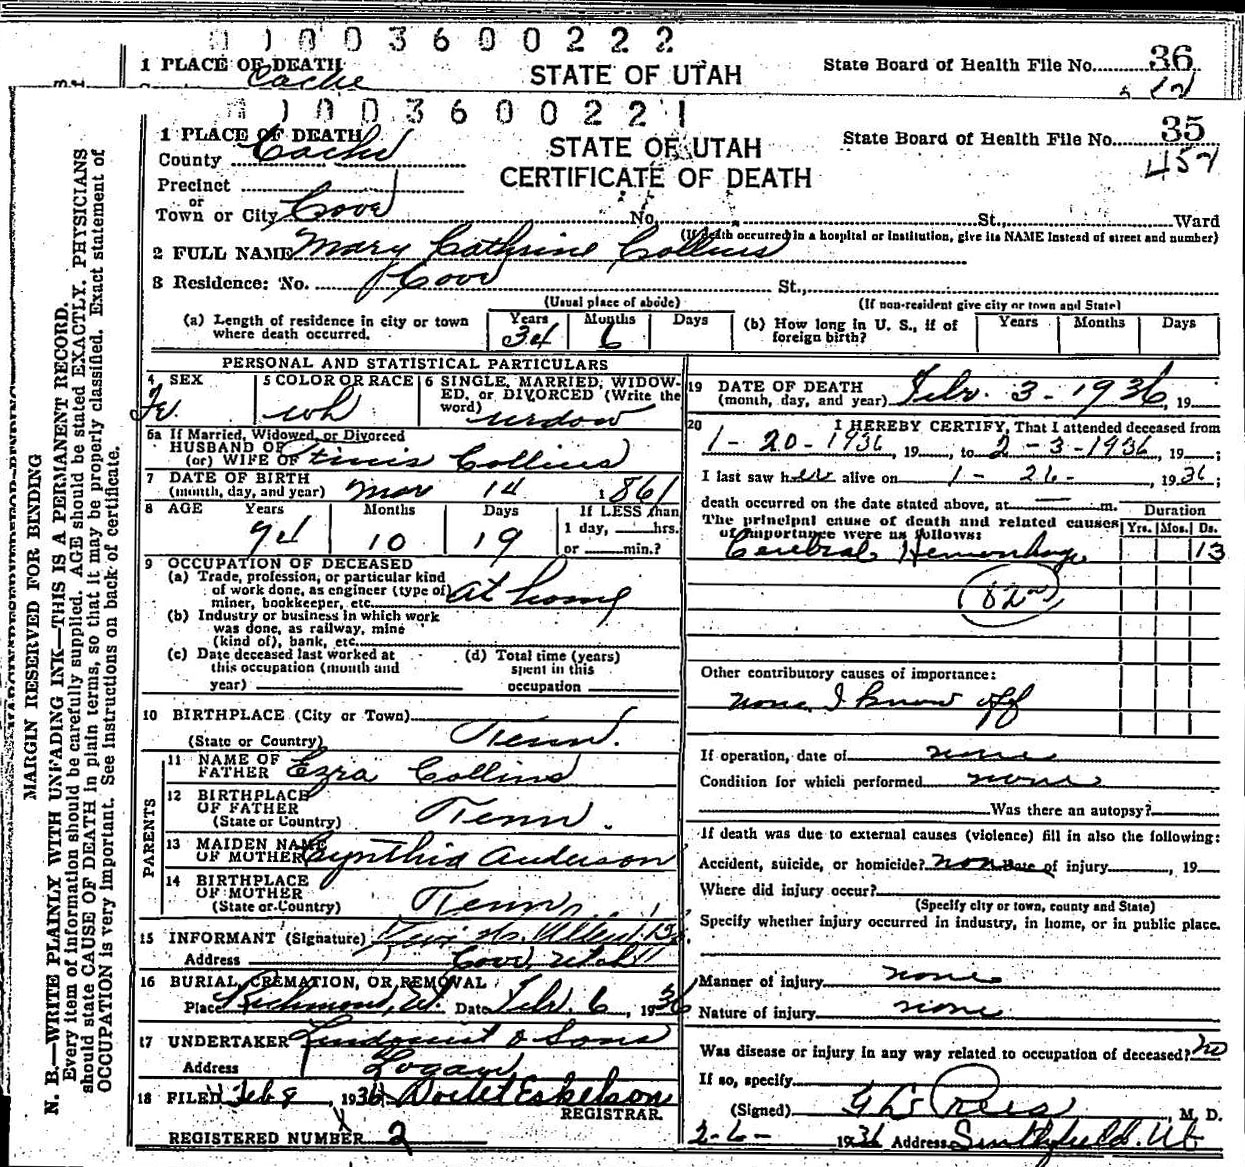 1 0 0 3 6 0 0 2 2 2
1 PLACE OF DEATH
Cache
STATE OF UTAH
State Board of Health File No. 36
1 0 0 3 6 0 0 2 2 1
1 PLACE OF DEATH
County Cache
STATE OF UTAH
CERTIFICATE OF DEATH
State Board of Health File No. 35
452
Precinct
or
Town or City Cove No. St., Ward
(If death occurred in a hospital or institution, give its NAME instead of street and number)
2 FULL NAME Mary Cathrine Collins
3 Residence: No. Cove St.,
(Usual place of abode) (If non-resident give city or town and State)
(a) Length of residence in city or town where death occurred. Years 34 Months 6 Days
(b) How long in U. S., if of foreign birth? Years Months Days
PERSONAL AND STATISTICAL PARTICULARS
4 SEX Fe.
5 COLOR OR RACE wh
6 SINGLE, MARRIED, WIDOWED, or DIVORCED (Write the word) widow
5a If Married, Widowed, or Divorced
HUSBAND OF
(or) WIFE OF Collins
7 DATE OF BIRTH
(month, day, and year) Mar 14 1861
8 AGE Years 74 Months 10 Days 19 If LESS than
1 day, hrs.
or min.?
9 OCCUPATION OF DECEASED
(a) Trade, profession, or particular kind
of work done, as engineer (type of)
miner, bookkeeper, etc. at home
(b) Industry or business in which work
was done, as railway, mine
(kind of), bank, etc.
(c) Date deceased last worked at
this occupation (month and
year)
(d) Total time (years)
spent in this
occupation
10 BIRTHPLACE (City or Town)
(State or Country) Tenn.
PARENTS
11 NAME OF
FATHER Ezra Collins
12 BIRTHPLACE
OF FATHER
(State or Country) Tenn.
13 MAIDEN NAME
OF MOTHER Cynthia Anderson
14 BIRTHPLACE
OF MOTHER
(State or Country) Tenn.
15 INFORMANT (Signature) Allen
Address Cove, Utah
16 BURIAL, CREMATION, OR REMOVAL
Place Richmond, Ut. Date Febr. 6, 1936
17 UNDERTAKER Lindquist & Sons
Address Logan
18 FILED Feb 8, 1936 Eskelson
REGISTRAR.
REGISTERED NUMBER 2
19 DATE OF DEATH
(month, day, and year) Febr. 3 - 1936, 19
20 I HEREBY CERTIFY, That I attended deceased from
1 - 20 - 1936, 19, to 2 - 3 - 1936, 19;
I last saw her alive on 1 - 26 -, 1936;
death occurred on the date stated above, at m.
Duration
The principal cause of death and related causes
of importance were as follows: Yrs. Mos. Ds.
Cerebral Hemorrhage 13
82a
Other contributory causes of importance:
none I know off
If operation, date of none
Condition for which performed none
Was there an autopsy?
If death was due to external causes (violence) fill in also the following:
Accident, suicide, or homicide? non Date of injury, 19
Where did injury occur?
(Specify city or town, county and State)
Specify whether injury occurred in industry, in home, or in public place.
Manner of injury none
Nature of injury none
Was disease or injury in any way related to occupation of deceased? no
If so, specify
(Signed) Rees, M. D.
2-6- 1936 Address Smithfield. Ut
MARGIN RESERVED FOR BINDING
N. B.—WRITE PLAINLY WITH UNFADING INK—THIS IS A PERMANENT RECORD.
Every item of information should be carefully supplied. AGE should be stated EXACTLY. PHYSICIANS
should state CAUSE OF DEATH in plain terms, so that it may be properly classified. Exact statement of
OCCUPATION is very important. See instructions on back of certificate.